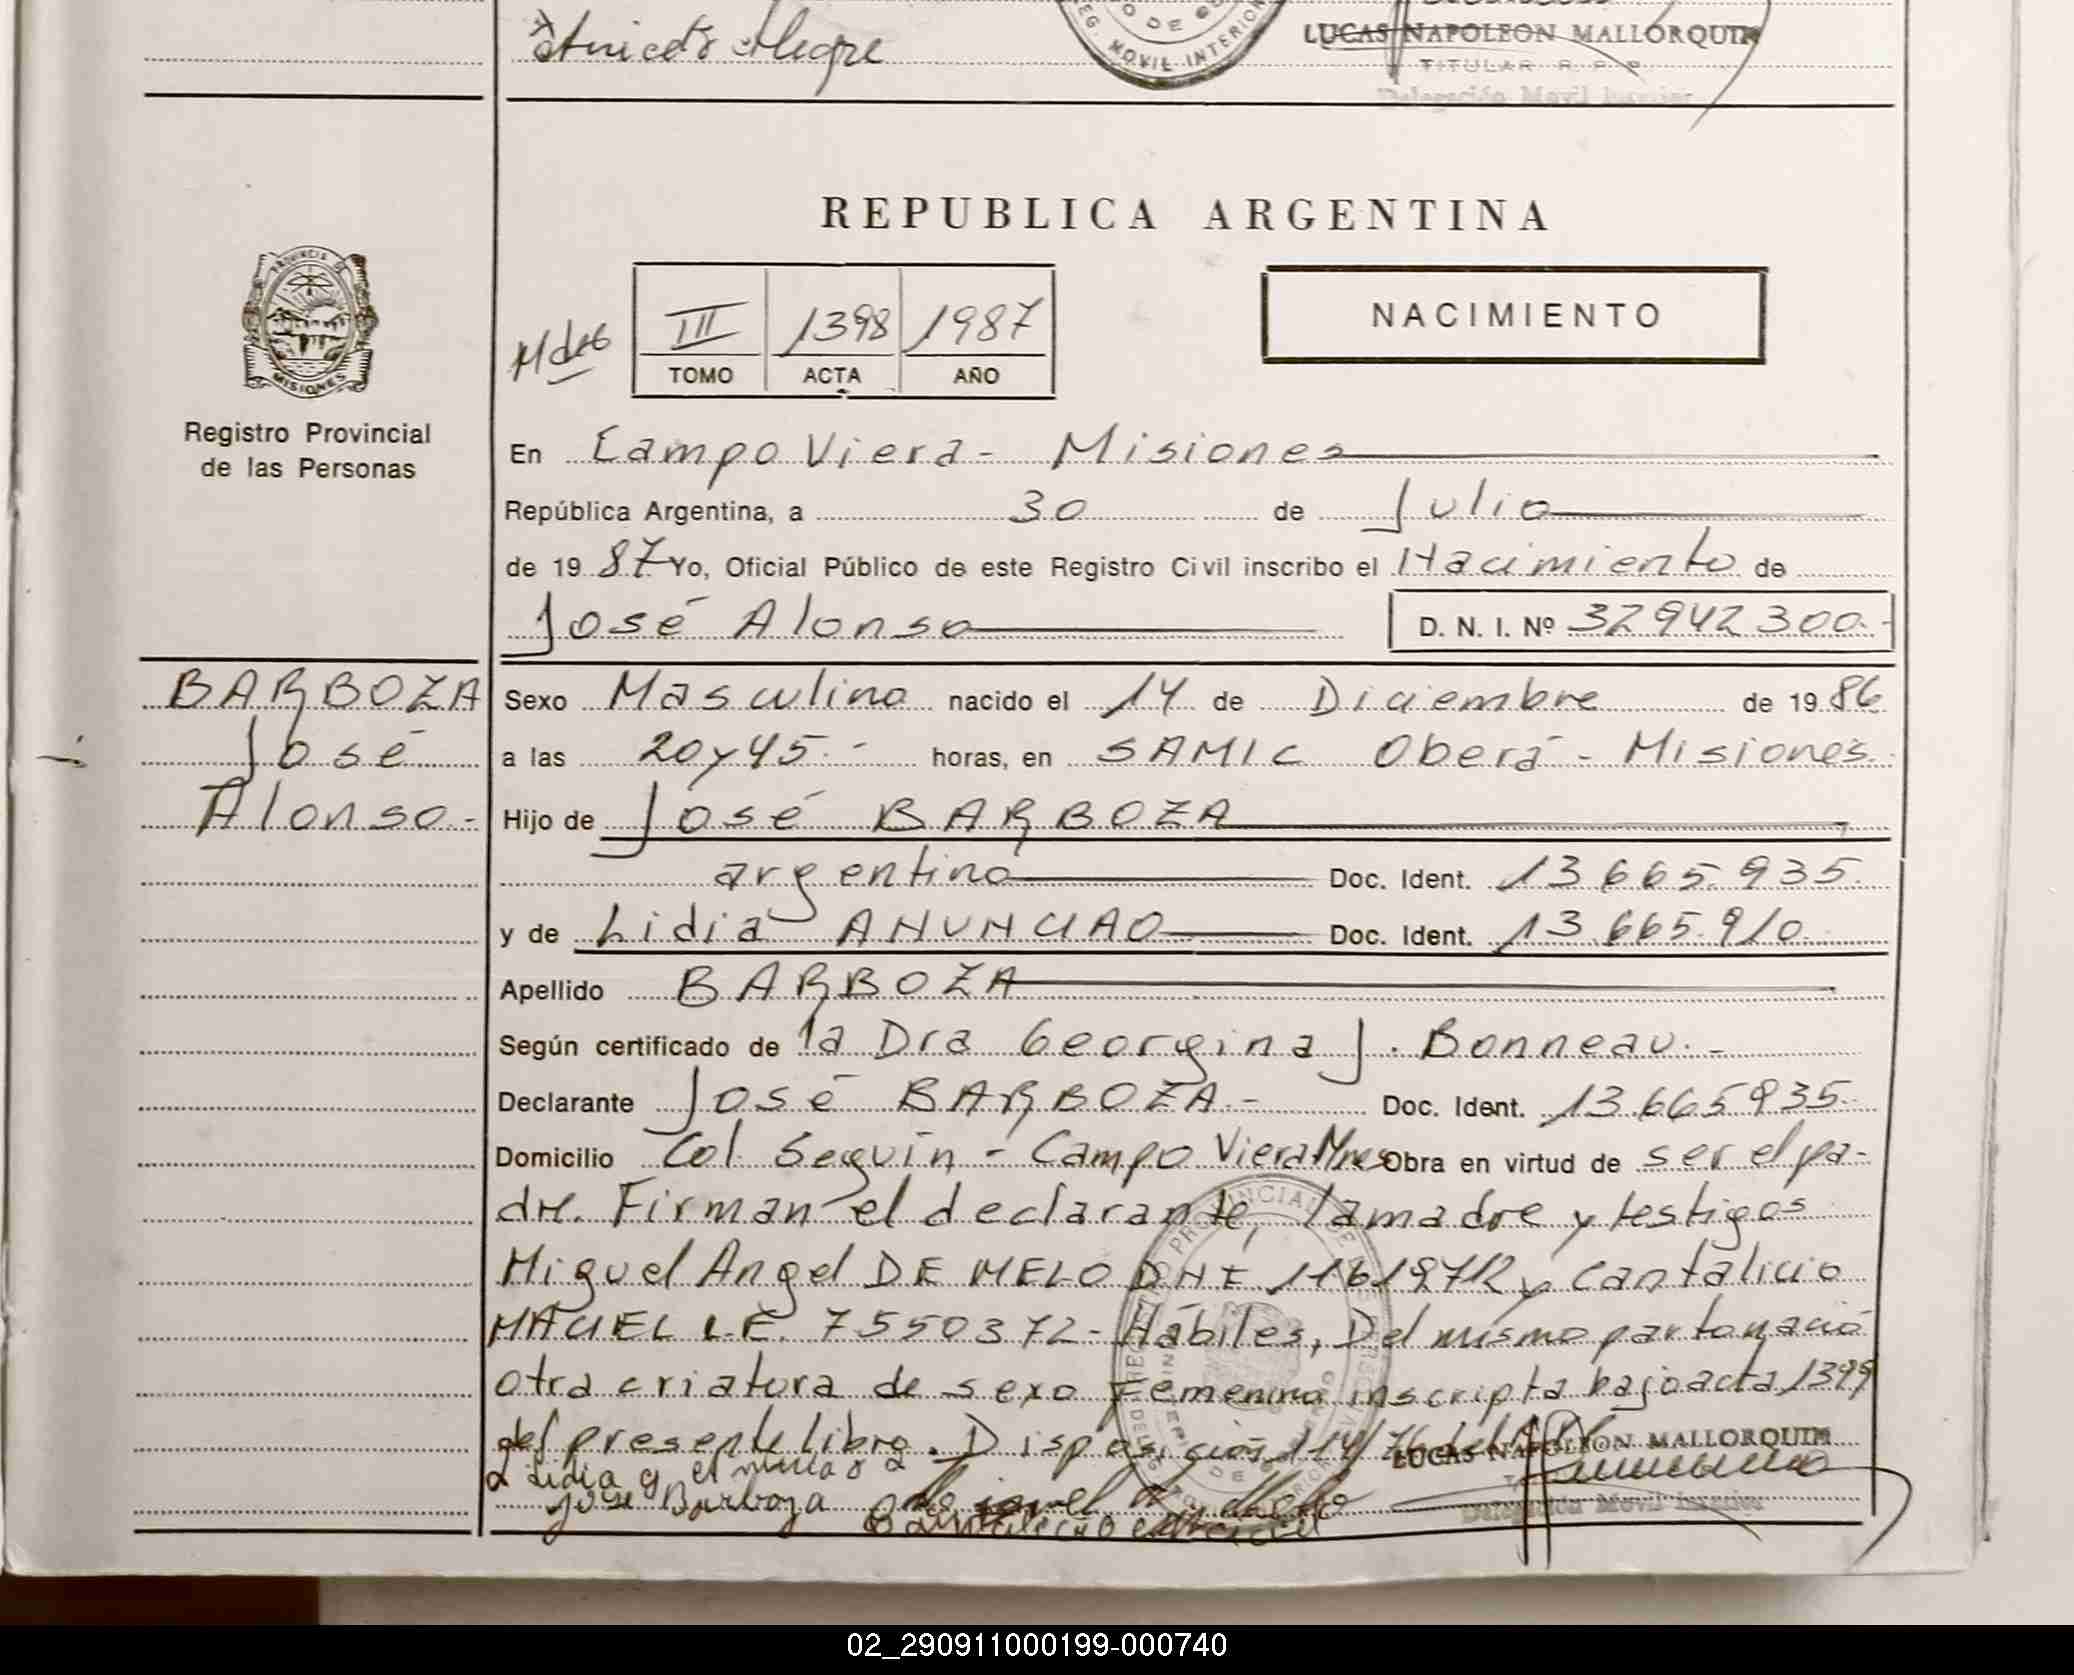 Aniceto Alegre
O DE
REG. MOVIL INTERIOR
LUCAS NAPOLEON MALLORQUIN
TITULAR R. P. P.
Delegación Movil Interior
REPUBLICA ARGENTINA
PROVINCIA DE
MISIONES
Registro Provincial
de las Personas
III 1398 1987
TOMO ACTA AÑO
NACIMIENTO
En Campo Viera - Misiones
República Argentina, a 30 de Julio
de 1987 Yo, Oficial Público de este Registro Civil inscribo el Nacimiento de
José Alonso D. N. I. Nº 32942300.-
BARBOZA
José
Alonso.-
Sexo Masculino nacido el 14 de Diciembre de 1986
a las 20 y 45.- horas, en SAMIC Oberá - Misiones.
Hijo de José BARBOZA
argentino Doc. Ident. 13.665.935.
y de Lidia ANUNCIAO Doc. Ident. 13.665.910.
Apellido BARBOZA
Según certificado de la Dra Georgina J. Bonneau.-
Declarante José BARBOZA.- Doc. Ident. 13.665935.
Domicilio Col. Seguín - Campo Viera Mnes Obra en virtud de ser el pa-
dre. Firman el declarante, la madre y testigos
Miguel Angel DE MELO DNI 11619712 y Cantalicio
MACIEL L.E. 7550372 - Hábiles, Del mismo parto nació
otra criatura de sexo Femenino inscripta bajo acta 1399
del presente libro. Disposición 114/76 del
LUCAS NAPOLEON MALLORQUIN
Lidia
José Barboza
Delegación Movil Interior
02_290911000199-000740